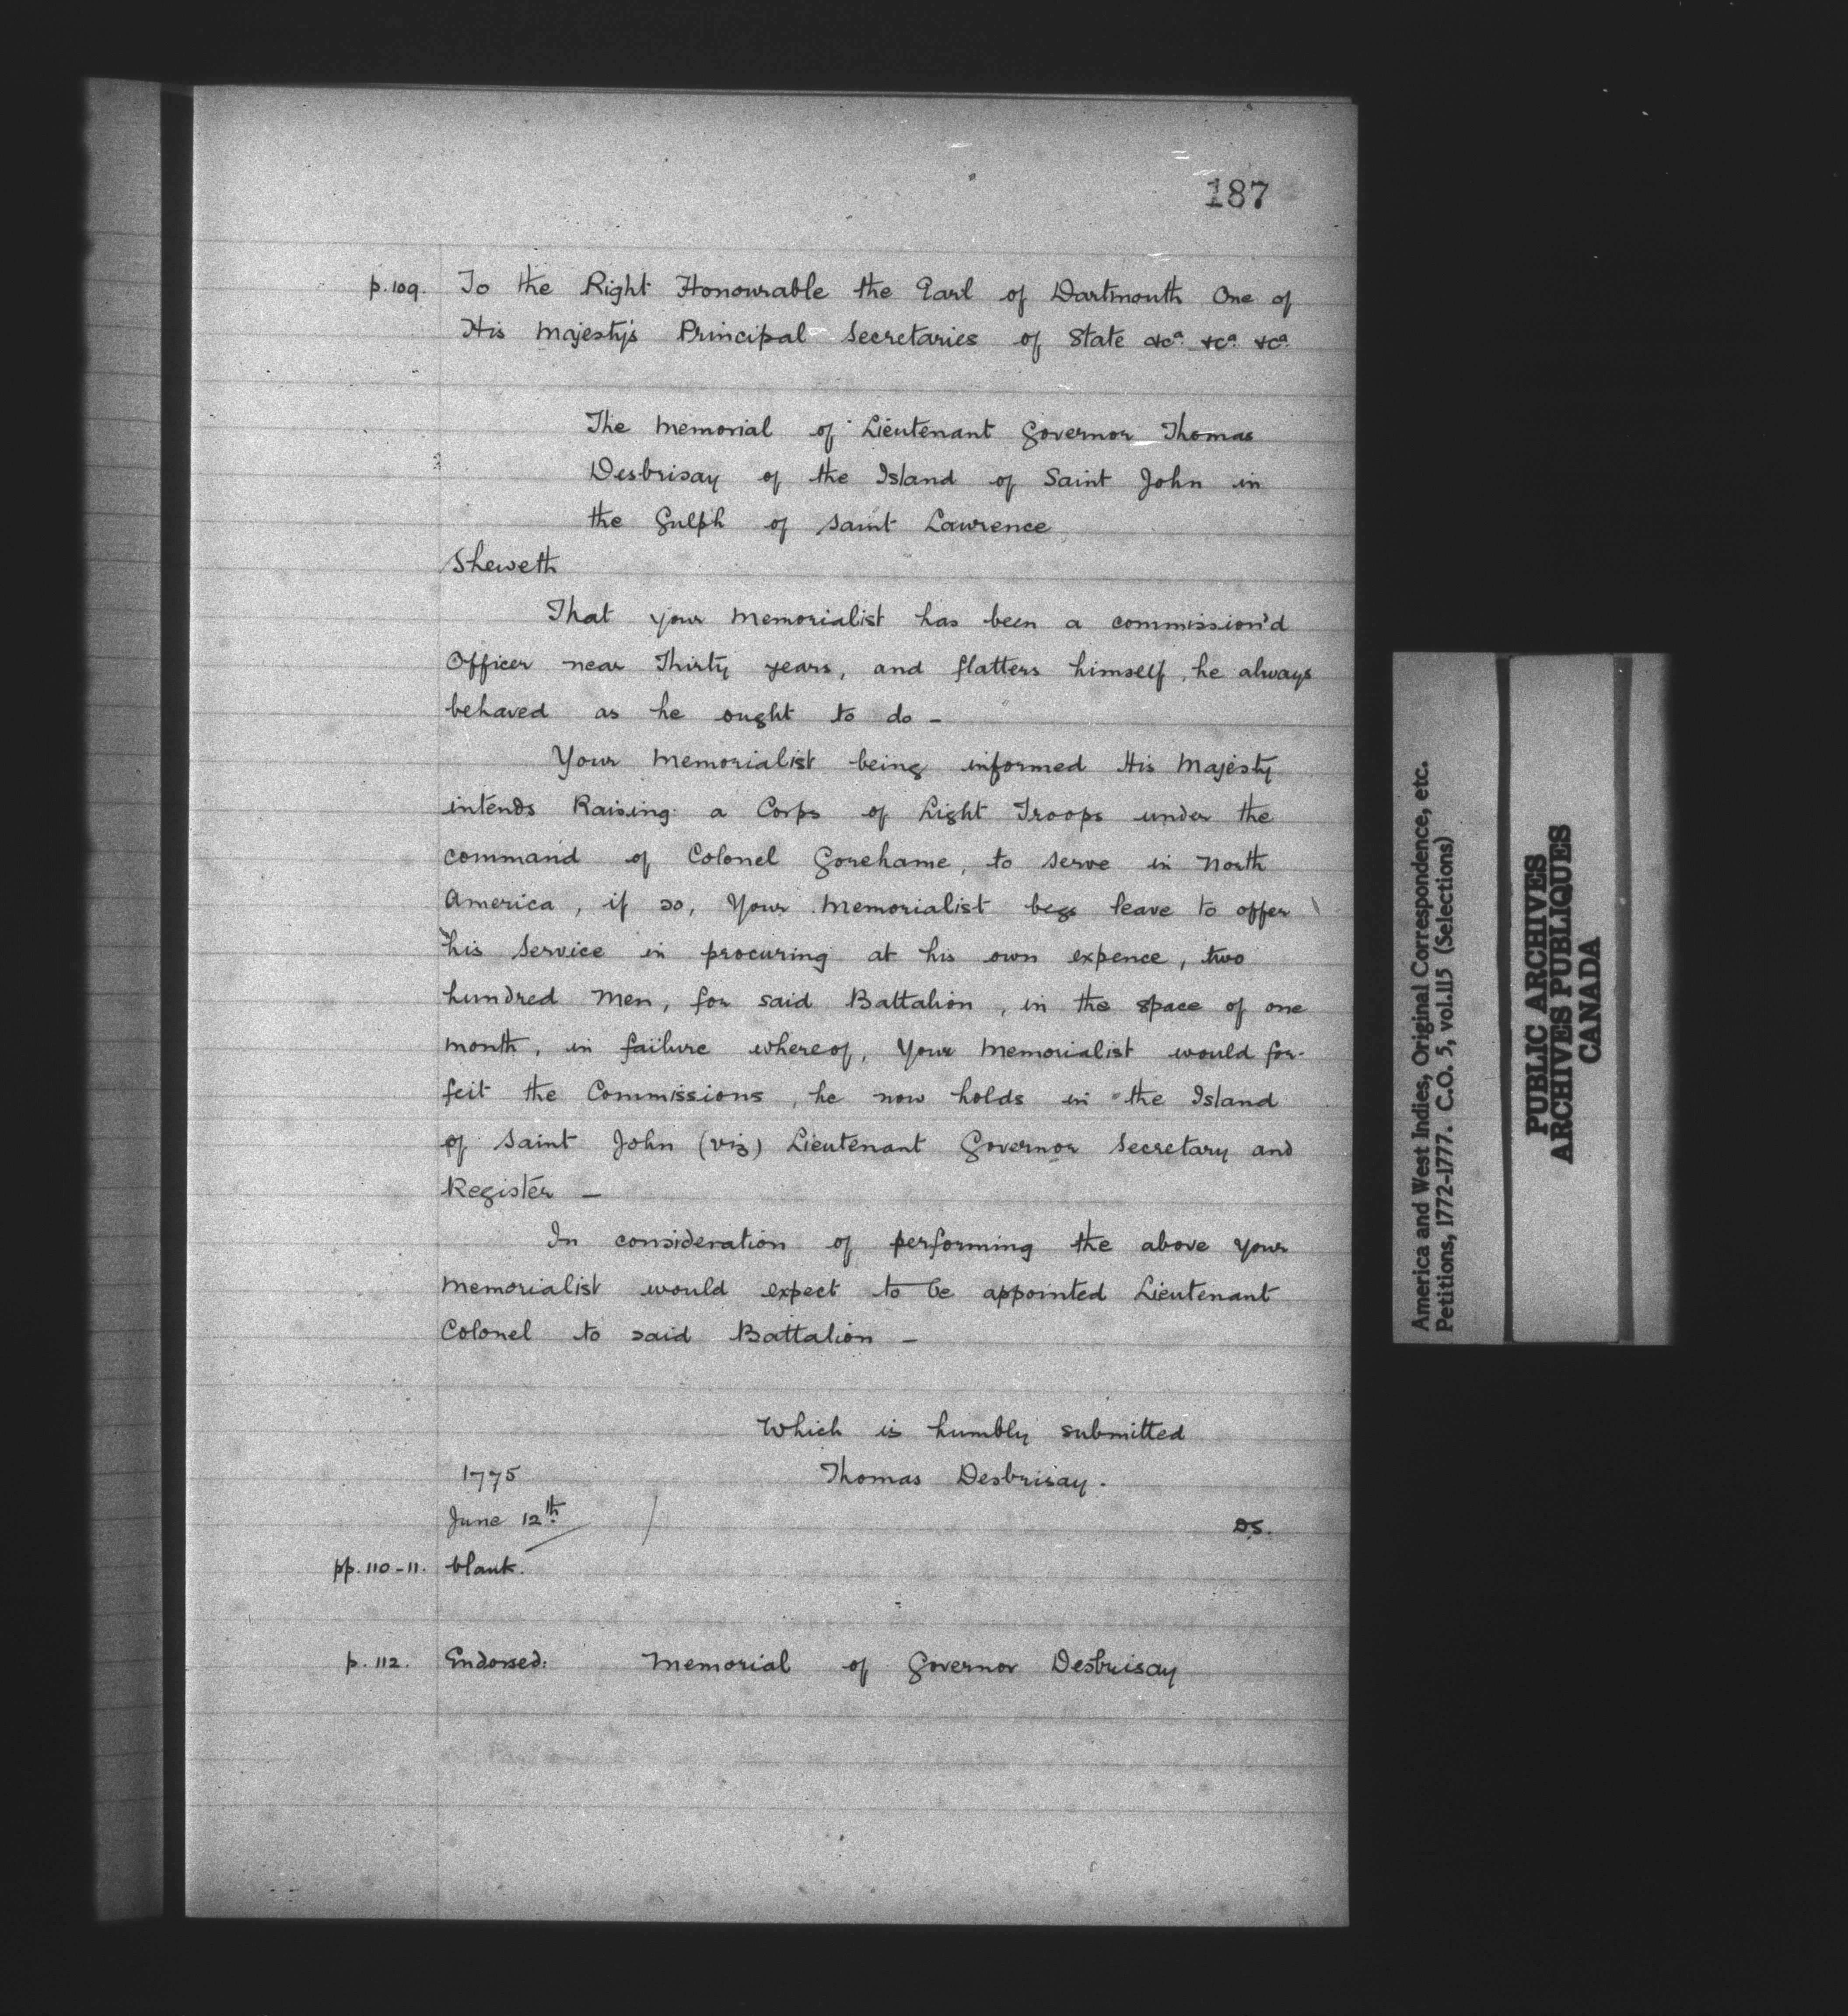 187
p. 109. To the Right Honourable the Earl of Dartmouth One of
His Majesty's Principal Secretaries of State &cª &cª &cª
The Memorial of Lieutenant Governor Thomas
Desbrisay of the Island of Saint John in
the Gulph of Saint Lawrence
Sheweth
That your Memorialist has been a commission'd
Officer near Thirty years, and flatters himself, he always
behaved as he ought to do -
Your Memorialist being informed His Majesty
intends Raising a Corps of Light Troops under the
command of Colonel Gorehame, to serve in North
America, if so, Your Memorialist begs leave to offer
his Service in procuring at his own expence, two
hundred Men, for said Battalion, in the space of one
month, in failure whereof, Your Memorialist would for-
feit the Commissions, he now holds in the Island
of Saint John (viz) Lieutenant Governor Secretary and
Register -
In consideration of performing the above Your
Memorialist would expect to be appointed Lieutenant
Colonel to said Battalion -
Which is humbly submitted
1775 Thomas Desbrisay.
June 12th D.S.
pp. 110-11. blank.
p. 112. Endorsed: Memorial of Governor Desbrisay
America and West Indies, Original Correspondence, etc.
Petitions, 1772-1777. C.O. 5, vol.115 (Selections)
PUBLIC ARCHIVES
ARCHIVES PUBLIQUES
CANADA